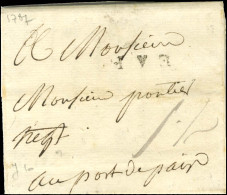 1787
A Monsieur
Monsieur portier
negt
au port de paix